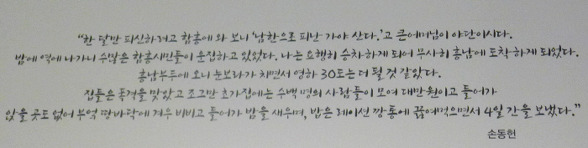 "한 달만 피신하려고 함흥에 와 보니 '남한으로 피난 가야 산다.'고 큰어머님이 야단이시다.
밤에 역에 나가니 수많은 함흥시민들이 운집하고 있었다. 나는 요행히 승차하게 되어 무사히 흥남에 도착하게 되었다.
흥남부두에 오니 눈보라가 치면서 영하 30도는 더 될 것 같았다.
집들은 폭격을 맞았고 조그만 초가집에는 수백 명의 사람들이 모여 대만원이고 들어가
앉을 곳도 없어 부엌 땅바닥에 겨우 비비고 들어가 밤을 새우며, 밥은 레이션 깡통에 끓여먹으면서 4일 간을 보냈다."
손동헌